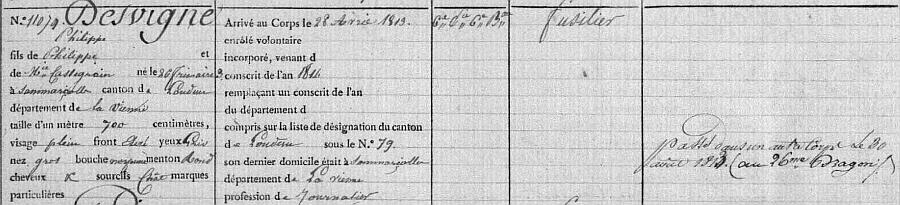 N.° 11079 Desvigne
Philippe
fils de Philippe et
de M.ie Cassegrain né le 20 frimaire 3
à Sammarçolle canton de Loudun
département de la Vienne
taille d'un mètre 700 centimètres,
visage plein front Élevé yeux Gris
nez gros bouche moyenne menton Rond
cheveux & sourcils Chat marques
particulières
Arrivé au Corps le 28 Avril 1813.
enrôlé volontaire
incorporé, venant d
conscrit de l'an 1814
remplaçant un conscrit de l'an
du département d
compris sur la liste de désignation du canton
de Loudun sous le N.° 79.
son dernier domicile était à Sammarçolle
département de La Vienne
profession de Journalier
6e 6e B.on
fusilier
Passé dans un autre Corps Le 30
avril 1813 (au 26me Dragon)